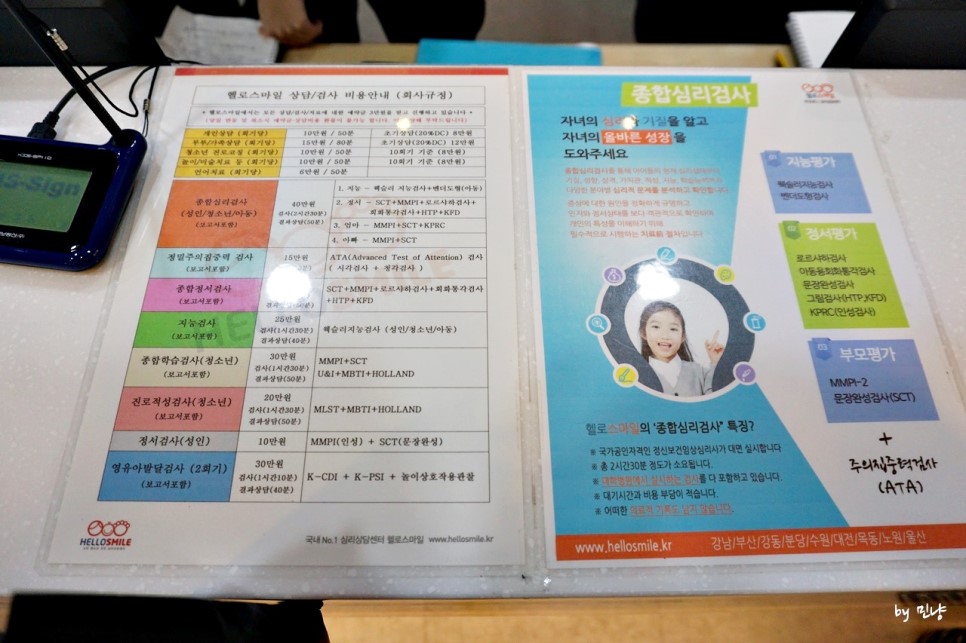 헬로스마일 상담/검사 비용안내 (회사규정)
개인상담 (회기당) 10만원 / 50분 초기상담(20%DC) 8만원
부부/가족상담 (회기당) 15만원 / 80분 초기상담(20%DC) 12만원
청소년 진로코칭 (회기당) 10만원 / 50분 10회기 기준 (8만원)
놀이/미술치료 등 (회기당) 10만원 / 50분 10회기 기준 (8만원)
언어치료 (회기당) 6만원 / 50분
종합심리검사
(성인/청소년/아동)
40만원
검사(2시간30분)
결과상담(50분)
1. 지능 - 웩슬러 지능검사+벤더도형(아동)
2. 정서 - SCT+MMPI+로르샤하검사+
회화통각검사+HTP+KFD
3. 엄마 - MMPI+SCT+KPRC
4. 아빠 - MMPI+SCT
정밀주의집중력 검사
(보고서포함)
15만원
ATA(Advanced Test of Attention) 검사
( 시각검사 + 청각검사 )
종합정서검사
(보고서포함)
결과상담(50분)
SCT+MMPI+로르샤하검사+회화통각검사
+HTP+KFD
지능검사
(보고서포함)
25만원
검사(1시간30분)
결과상담(40분)
웩슬러지능검사 (성인/청소년/아동)
종합학습검사(청소년)
(보고서포함)
30만원
검사(1시간30분)
결과상담(50분)
MMPI+SCT
U&I+MBTI+HOLLAND
진로적성검사(청소년)
(보고서포함)
20만원
검사(1시간30분)
결과상담(50분)
MLST+MBTI+HOLLAND
정서검사(성인)
10만원
MMPI(인성) + SCT(문장완성)
영유아발달검사 (2회기)
(보고서포함)
30만원
검사(1시간10분)
결과상담(40분)
K-CDI + K-PSI + 놀이상호작용관찰
HELLOSMILE
국내 No.1 심리상담센터 헬로스마일 www.hellosmile.kr
종합심리검사
자녀의 기질을 알고
자녀의 올바른 성장을
도와주세요
01
지능평가
웩슬러지능검사
벤더도형검사
02
정서평가
로르샤하검사
아동용회화통각검사
문장완성검사
그림검사(HTP,KFD)
KPRC(인성검사)
03
부모평가
MMPI-2
문장완성검사(SCT)
+
주의집중력검사
(ATA)
헬로스마일의 '종합심리검사' 특징?
※ 국가공인자격인 정신보건임상심리사가 대면 실시합니다
※ 총 2시간30분 정도가 소요됩니다.
※ 대학병원에서 실시하는 검사를 다 포함하고 있습니다.
※ 대기시간과 비용 부담이 적습니다.
※ 어떠한 의료적 기록도 남지 않습니다.
www.hellosmile.kr 강남/부산/강동/분당/수원/대전/목동/노원/울산
by 민냥